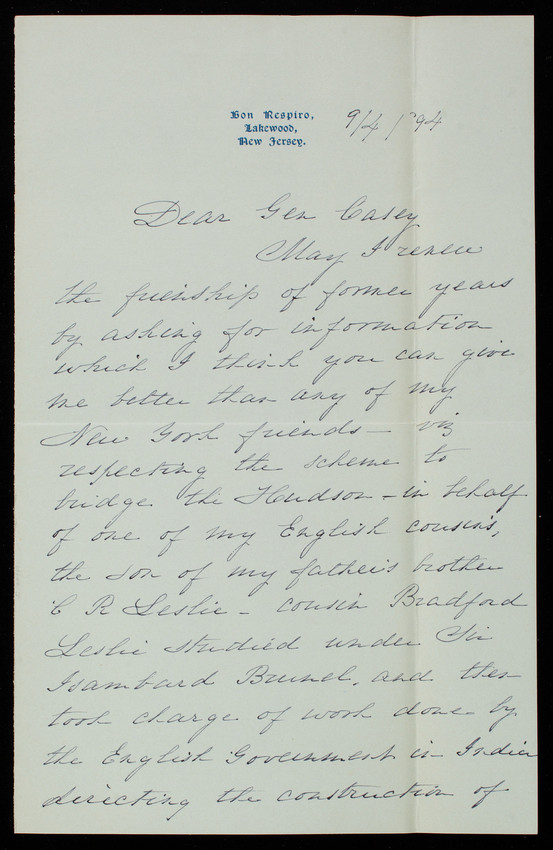 Bon Respiro,
Lakewood,
New Jersey.
9/4/94
Dear Gen Casey
May I renew
the frienship of former years
by asking for information
which I think you can give
me better than any of my
New York friends - viz
respecting the scheme to
bridge the Hudson - in behalf
of one of my English cousins,
the son of my father's brother
C R Leslie - cousin Bradford
Leslie studied under Sir
Isambard Brunel, and then
took charge of work done by
the English Government in India
directing the construction of